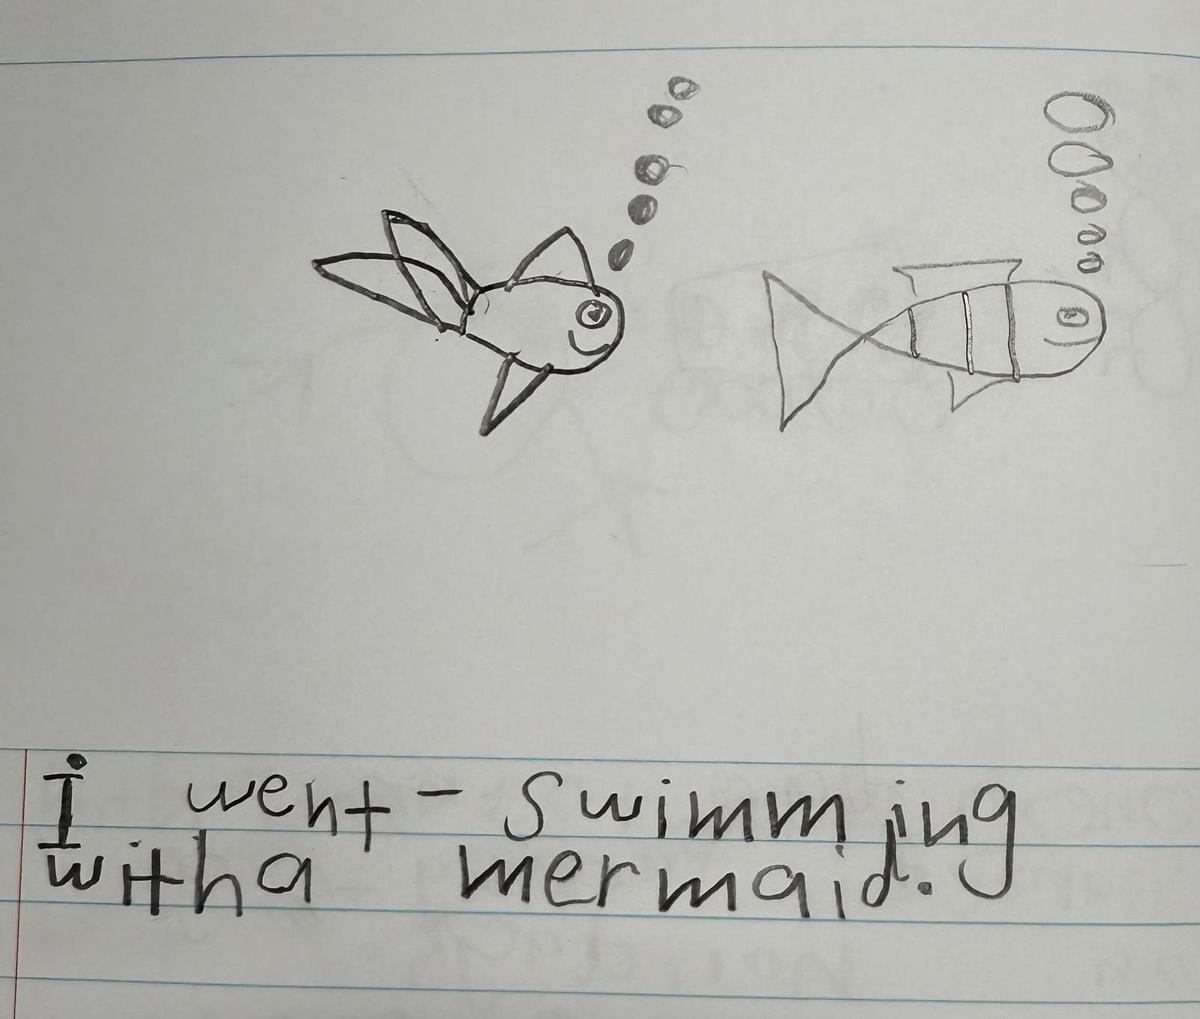 I went - swimming
with a mermaid.